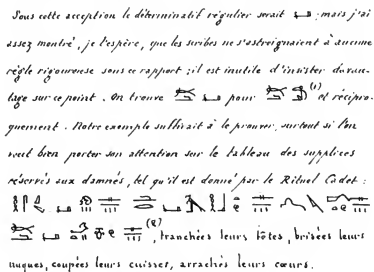 Sous cette acception le déterminatif régulier serait ; mais j'ai
assez montré, je l'espère, que les scribes ne s'astreignaient à aucune
règle rigoureuse sous ce rapport ; il est inutile d'insister davan-
tage sur ce point. On trouve pour (1) et récipro-
quement. Notre exemple suffirait à le prouver, surtout si l'on
veut bien porter son attention sur le tableau des supplices
réservés aux damnés, tel qu'il est donné par le Rituel Cadet :
(2), tranchées leurs têtes, brisées leurs
nuques, coupées leurs cuisses, arrachés leurs cœurs.